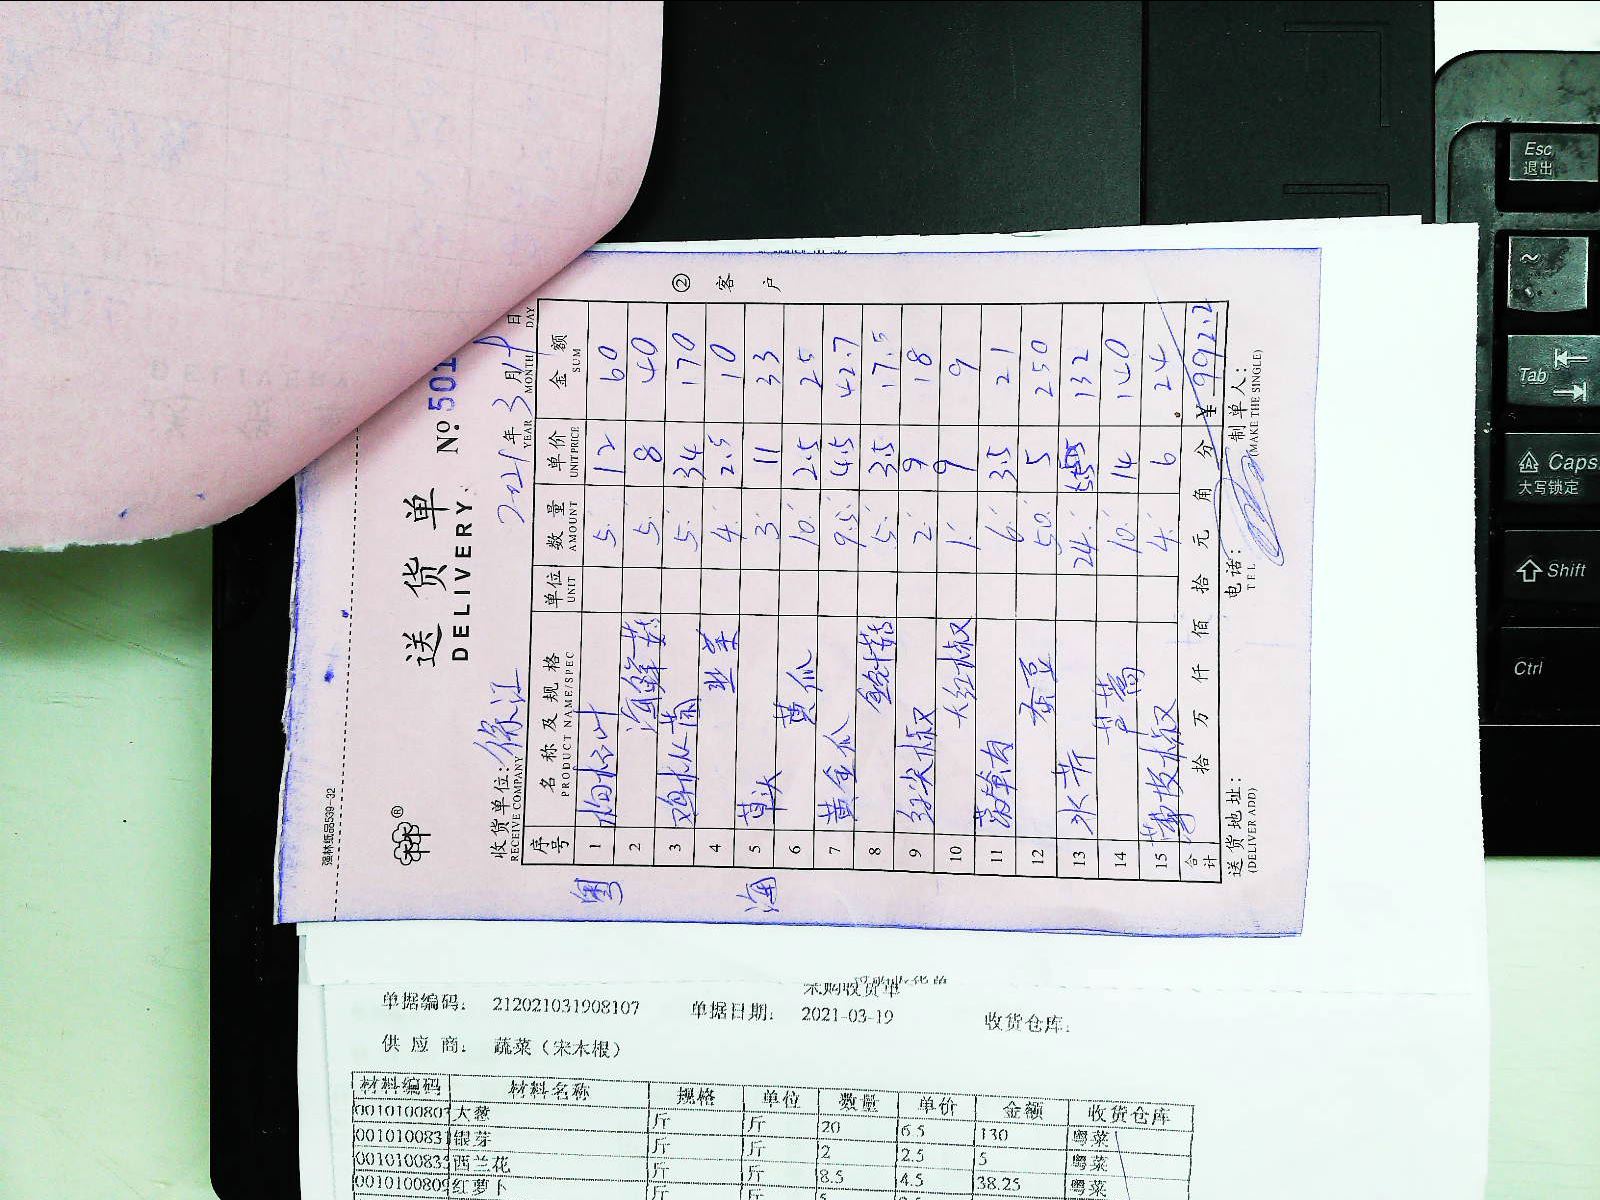 强林纸品539-32
送货单
DELIVERY
No. 501
② 客户
收货单位: 徐汇 2021年3月19日
RECEIVE COMPANY YEAR MONTH DAY
序号 名称及规格 单位 数量 单价 金额
PRODUCT NAME/SPEC UNIT AMOUNT UNITPRICE SUM
1 柏松叶 5 12 60
2 海鲜菇 5 8 40
3 鸡枞菌 5 34 170
4 韭菜 4 2.5 10
5 草头 3 11 33
6 黄瓜 10 2.5 25
7 黄金瓜 9.5 4.5 42.7
8 鲍菇 5 3.5 17.5
9 红尖椒 2 9 18
10 大红椒 1 9 9
11 6 3.5 21
12 蚕豆 50 5 250
13 水芹 24 5.5 132
14 芦蒿 10 14 140
15 薄皮椒 4 6 24
合计 拾 万 仟 佰 拾 元 角 分 ¥992.2
送货地址: 电话: 制单人:
(DELIVER ADD) TEL (MAKE THE SINGLE)
粤海
采购收货单
单据编码: 212021031908107 单据日期: 2021-03-19 收货仓库:
供应商: 蔬菜(宋木根)
材料编码 材料名称 规格 单位 数量 单价 金额 收货仓库
0010100807 大葱 斤 斤 20 6.5 130 粤菜
001010083 银芽 斤 斤 2 2.5 5 粤菜
001010083 西兰花 斤 斤 8.5 4.5 38.25 粤菜
001010080 红萝卜 斤 斤
Esc
退出
~
Tab
Caps
大写锁定
Shift
Ctrl